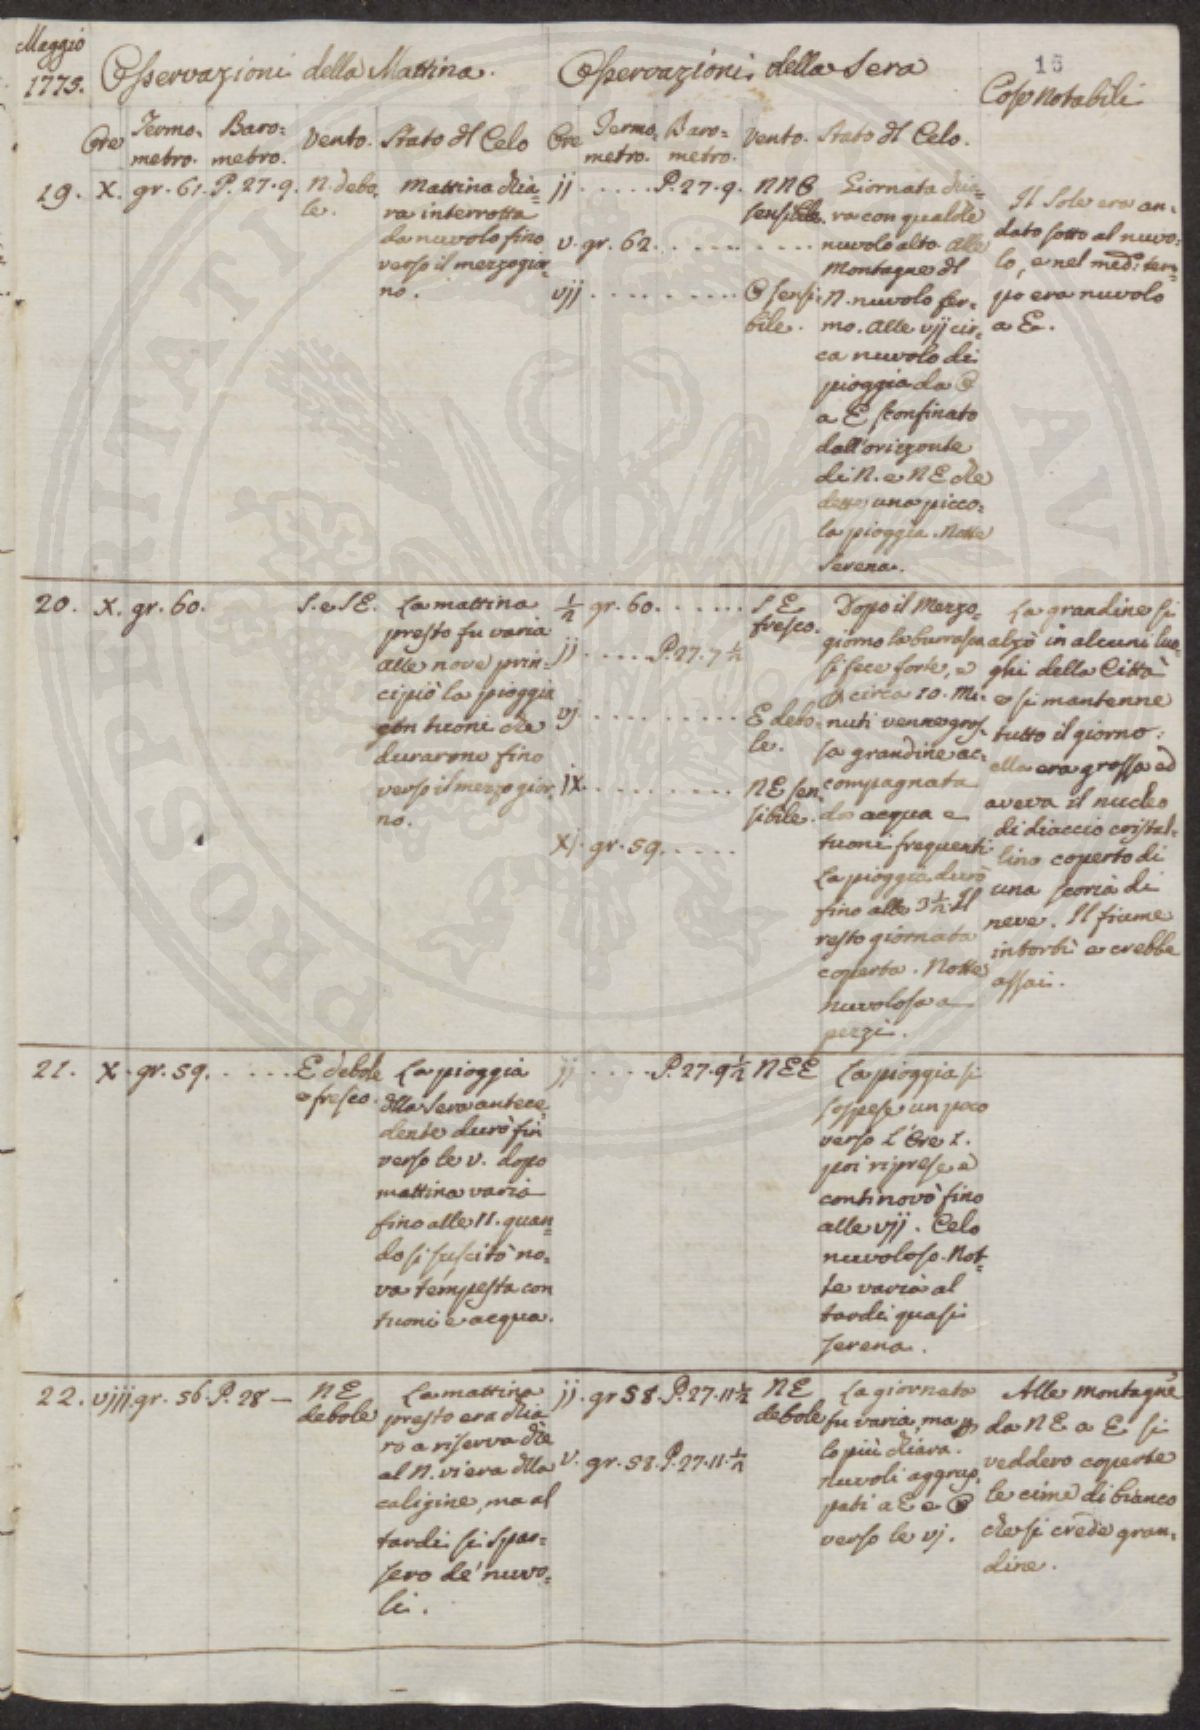 Maggio
1775.
Osservazioni della Mattina.
Osservazioni della Sera
16
Cose Notabili
Ore
Termo-
metro.
Baro=
metro.
Vento.
Stato dl Celo
Ore
Termo-
metro.
Baro-
metro.
Vento.
Stato dl Celo.
19. X. gr. 61. P. 27.9. N. debo
le.
Mattina chia
ra interrotta
da nuvolo fino
verso il mezzogior
no.
jj ..... P. 27.9. NNO
sensibile.
v. gr. 62. ..........
vjj ......... O sensi-
bile.
Giornata chia=
ra con qualche
nuvolo alto. Alle
Montagne dl
N. nuvolo fer=
mo. Alle vjj cir=
ca nuvolo di
pioggia da O
a E sconfinato
dall'orizzonte
di N. e NE che
dette una picco=
la pioggia. Notte
serena.
Il Sole era an=
dato sotto al nuvo=
lo, e nel med. tem=
po era nuvolo
a E.
20. X. gr. 60.
S. e SE.
La mattina
presto fu varia
alle nove prin=
cipiò la pioggia
con tuoni che
durarono fino
verso il mezzo gior
no.
1/2 gr. 60. ...... SE
fresco.
jj ..... P. 27. 7 1/2
vj. .......... E debo
le.
jx. .......... NE sen
sibile.
xj. gr. 59. .....
Dopo il Mezzo=
giorno la burrasca
si fece forte, e
circa 10. Mi=
nuti venne gros=
sa grandine ac=
compagnata
da acqua e
tuoni frequenti
La pioggia durò
fino alle 3 1/2 Il
resto giornata
coperta. Notte
nuvolosa a
pezzi.
La grandine si
alzò in alcuni luo=
ghi della Città
e si mantenne
tutto il giorno:
ella era grossa ed
aveva il nucleo
di diaccio cristal=
lino coperto di
una scoria di
neve. Il fiume
intorbò e crebbe
assai.
21. X. gr. 59. ..... E debole
e fresco.
La pioggia
dlla sera antece
dente durò fin
verso le v. dopo
mattina varia
fino alle 11. quan=
do si suscitò no=
va tempesta con
tuoni e acqua.
jj ..... P. 27.9 1/2 NEE
La pioggia si
sospese un poco
verso l'Ore 1.
poi riprese e
continovò fino
alle vjj. Celo
nuvoloso. Not=
te varia al
tardi quasi
serena.
22. vjjj. gr. 56. P. 28 —
NE
debole
La mattina
presto era chia
ra a riserva che
al N. vi era dlla
caligine, ma al
tardi si spar=
sero de' nuvo=
li.
jj. gr 58. P. 27. 11 1/2 NE
debole
v. gr. 58. P. 27. 11. 1/2
La giornata
fu varia, ma p
lo più chiara.
nuvoli aggrup
pati a E e O
verso le vj.
Alle Montagne
da NE a E si
veddero coperte
le cime di bianco
che si crede gran=
dine.
PROSPERITATI PUBLICAE AUG